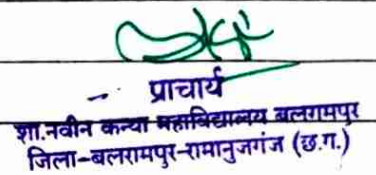 प्राचार्य
शा.नवीन कन्या महाविद्यालय बलरामपुर
जिला-बलरामपुर-रामानुजगंज (छ.ग.)